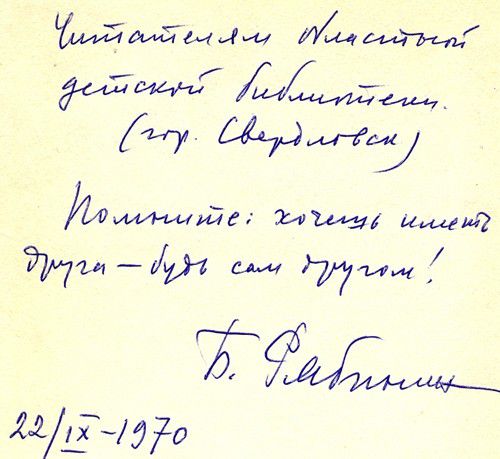 Читателям областной
детской библиотеки.
(гор. Свердловск)
Помните: хочешь иметь
друга — будь сам другом!
Б. Рябинин
22/IX-1970